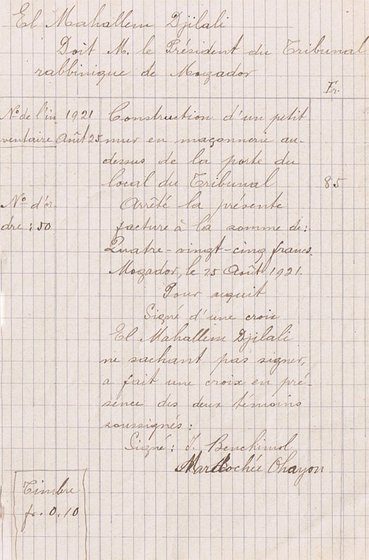 El Mahallem Djilali
Doit M. le Président du Tribunal
rabbinique de Mogador
Fr.
No de l'in 1921 Construction d'un petit
ventaire Août 25 mur en maçonnerie au-
dessus de la porte du
local du Tribunal 85
No d'or Arrêté la présente
dre : 50 facture à la somme de :
Quatre-vingt-cinq francs.
Mogador, le 25 Août 1921.
Pour acquit
Signé d'une croix
El Mahallem Djilali
ne sachant pas signer,
a fait une croix en pré-
sence des deux témoins
soussignés :
Signé : J. Benchimol
Mardochée Ohayon
Timbre
fr. 0,10